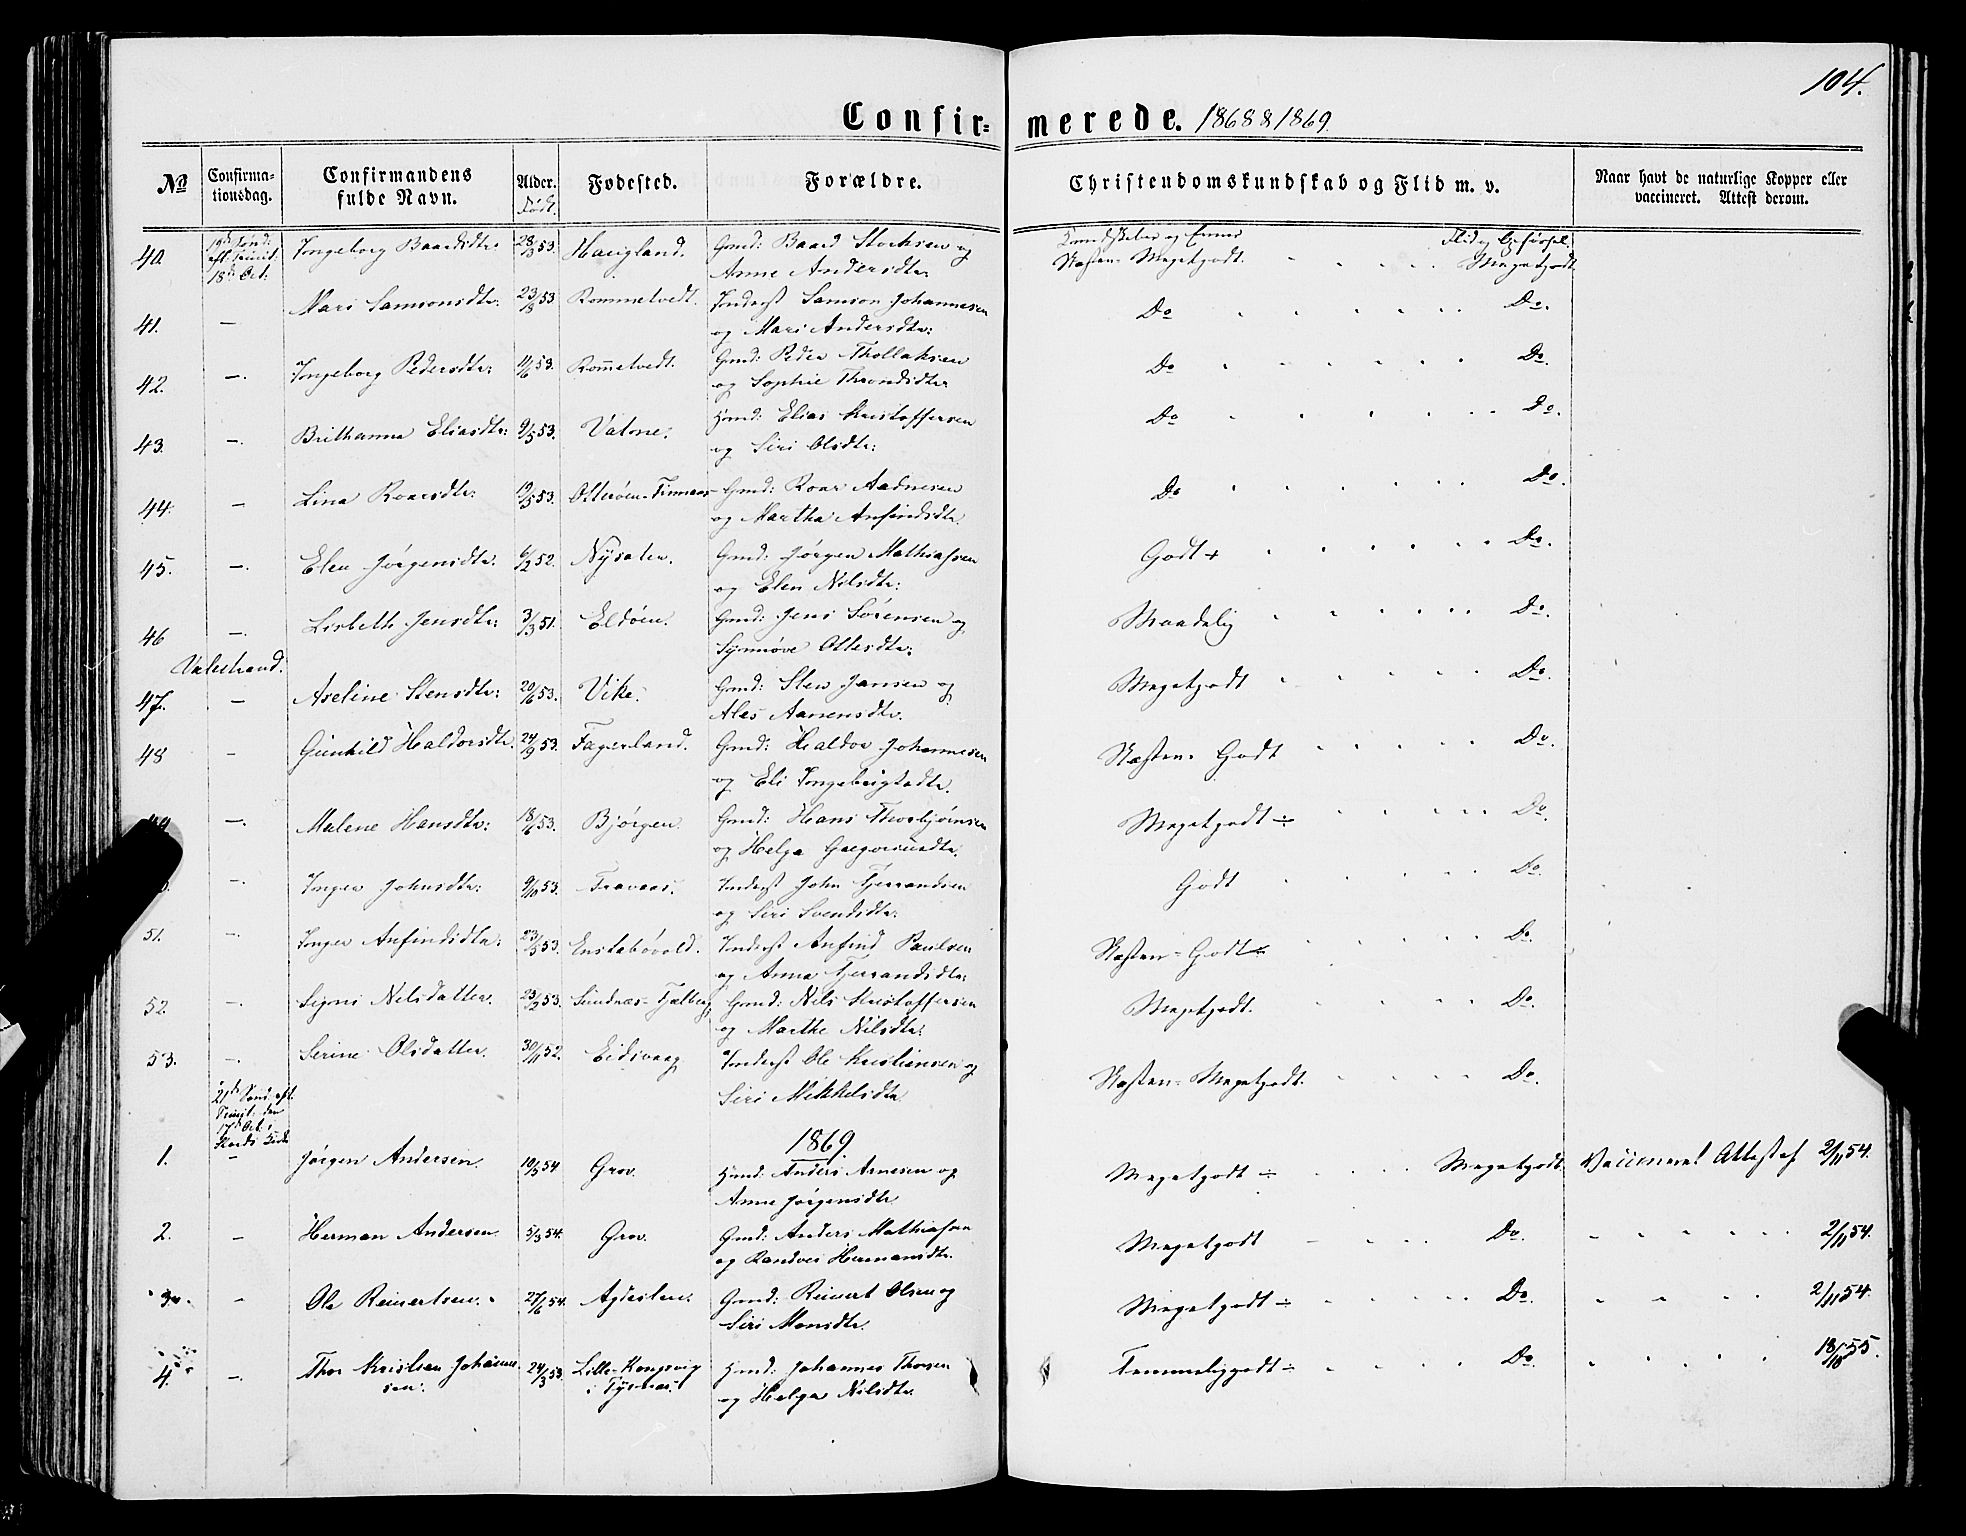 104.
Confirmerede. 1868 & 1869.
No Confirmationsdag. Confirmandens fulde Navn. Alder. Født. Fødested. Forældre. Christendomskundskab og Flid m. v. Naar havt de naturlige Kopper eller vaccineret. Attest derom.
40. 19de Sønd: eft. Trinit. 18de Oct. Ingeborg Baardsdtr. 28/3 53. Haugland. Gmd: Baard Storksen og Kundskaber og Evner Flid og Opførsel.
Anne Andersdtr. Næsten-Megetgodt. Megetgodt
41. — Mari Samsonsdtr. 23/8 53 Rommetvedt. Inderst Samson Johannesen Do Do.
og Mari Andersdtr:
42. — Ingeborg Pedersdtr: 11/6 53. Rommetvedt. Gmd: Peder Thollaksen Do Do.
og Sophie Throndsdtr
43. — Brithanna Eliasdtr: 9/5 53. Vatne. Hmd: Elias Kristoffersen Do Do.
og Siri Olsdtr:
44. — Lina Roarsdtr: 19/5 53. Otterøen-Finnaas Gmd: Roar Aadnesen Do Do.
og Martha Anfindsdtr.
45. — Elen Jørgensdtr. 6/2 52. Nysæter. Gmd: Jørgen Mathiassen Godt + Do.
og Elen Nilsdtr:
46 — Lisbeth Jensdtr: 3/3 51. Eldøen. Gmd: Jens Sørensen og Maadelig Do.
Synnøve Ottesdtr:
Valestrand.
47. — Axeline Stensdtr: 20/6 53. Vike. Gmd: Sten Jansen og Megetgodt Do.
Ales Aanensdtr.
48 — Gunhild Haldorsdtr. 24/9 53. Fagerland. Gmd: Haldor Johannesen Næsten-Godt Do.
og Eli Ingebrigtsdtr.
— Malene Hansdtr: 18/6 53. Bjørgen. Gmd: Hans Thorbjørnsen Megetgodt ÷ Do.
og Helga Gregoriusdtr.
— Inger Johnsdtr: 9/10 53. Fravaas. Inderst John Tjerrandsen Godt Do.
og Siri Svendsdtr:
51. — Inger Anfindsdtr: 23/5 53. Enstabøvold. Inderst Anfind Paulsen Næsten-Godt Do.
og Anna Tjerrandsdtr:
52. — Signi Nelsdatter. 23/2 53. Sundnæs-Fjelberg Gmd: Nels Kristoffersen Megetgodt. Do.
og Marthe Nilsdtr:
53. — Serine Olsdatter. 30/11 52. Eidsvaag Inderst Ole Kristiansen og Næsten-Megetgodt. Do.
Siri Mikkelsdtr.
21de Sønd. eft. Trinit: den 17de Oct. i Stords Kirke
1869.
1. — Jørgen Andersen. 10/5 54 Grov. Hmd: Anders Arnesen og Megetgodt ÷ Megetgodt. Vaccineret Attest af 2/11 54.
Anne Jørgensdtr.
2. — Herman Andersen 5/3 54. Grov. Gmd: Anders Mathiassen Megetgodt Do. 2/11 54.
og Randvei Hermansdtr.
3. — Ole Reinertsen. 27/6 54. Agdesten. Gmd: Reinert Olsen og Megetgodt ÷ Do. 2/11 54.
Siri Monsdtr.
4. — Thor Kristian Johannessen. 24/3 53. Lille-Kongsvig i Tysnæs. Hmd: Johannes Thorsen Temmeliggodt ÷ Do. 18/10 55.
og Helga Nilsdtr.